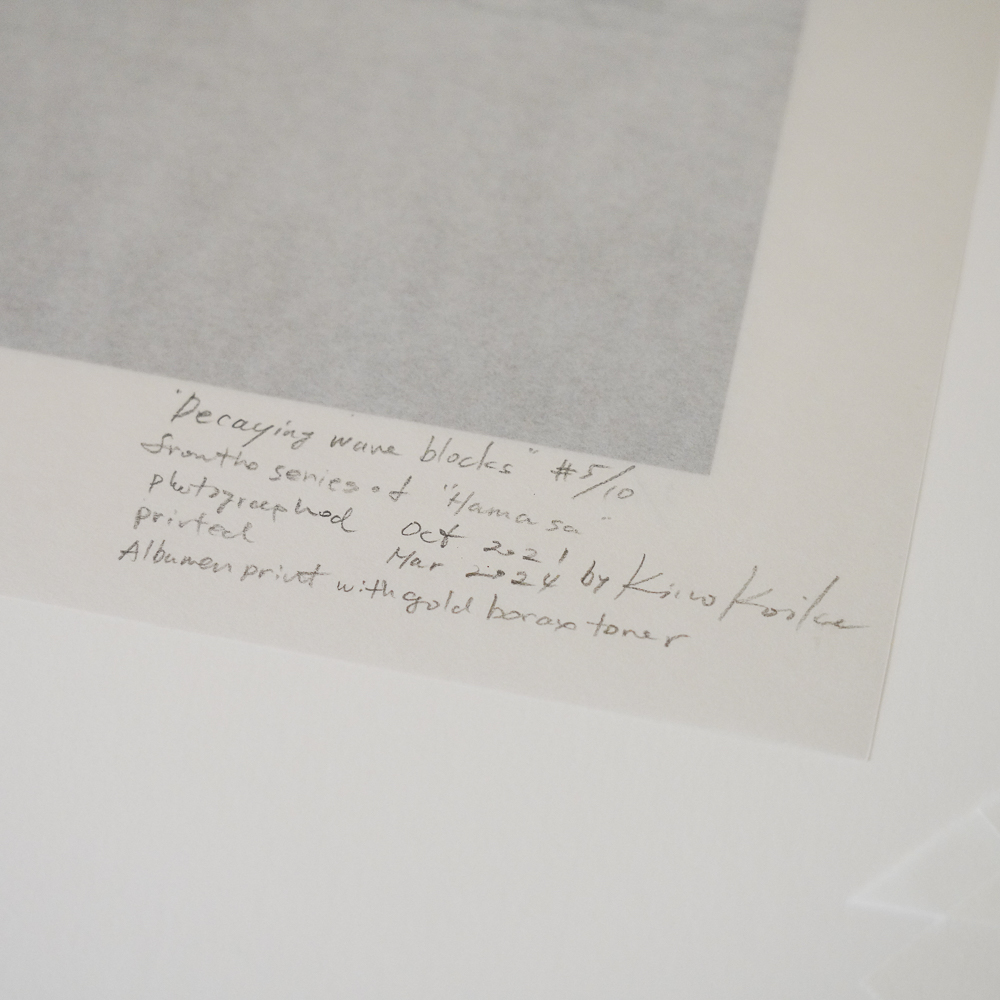 "Decaying wave blocks" #5/10
from the series of "Hamasa"
photographed Oct 2021
printed Mar 2024 by Kiiro Koike
Albumen print with gold borax toner